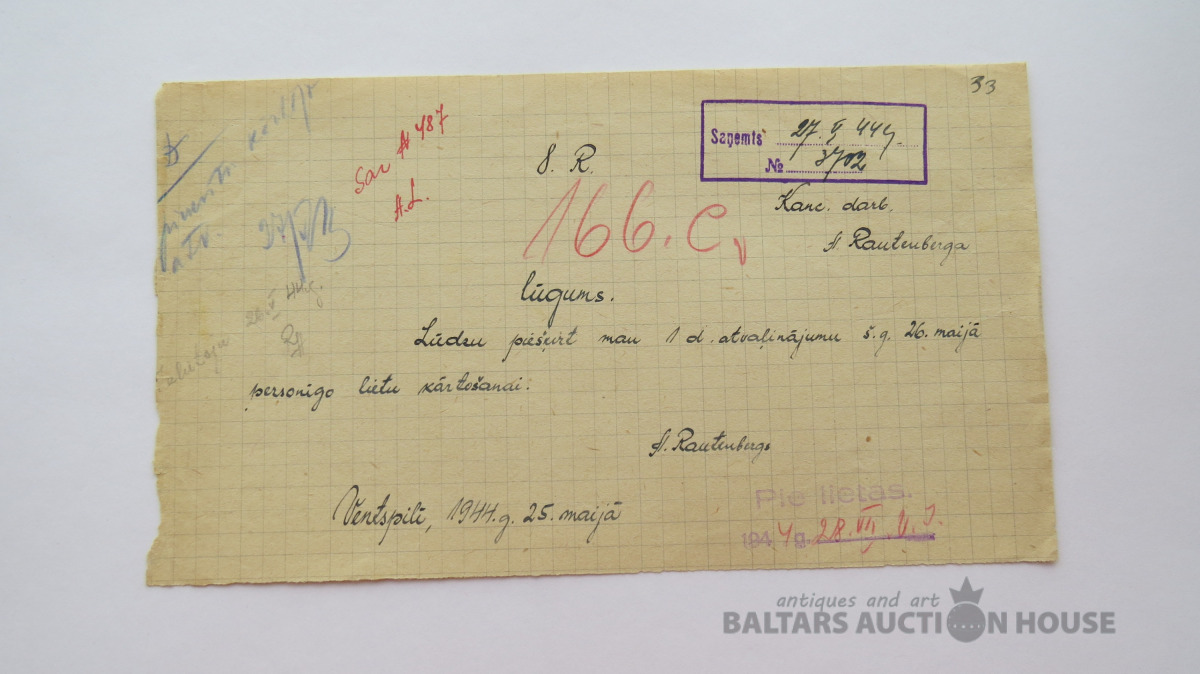 33
Sar № 487
A. L.
8. R.
Saņemts 27. V 44 g.
№ 3702
166. c,
Kanc. darb.
A. Rautenberga
lūgums.
Lūdzu piešķirt man 1 d. atvaļinājumu š. g. 26. maijā
personīgo lietu kārtošanai.
A. Rautenbergs
Ventspilī, 1944. g. 25. maijā
Pie lietas.
1944 g. 28. VII
antiques and art
BALTARS AUCTION HOUSE